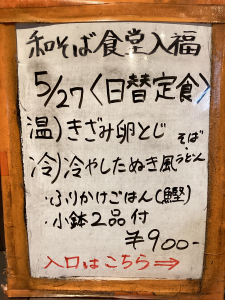 和そば食堂入福
5/27〈日替定食〉
温)きざみ卵とじ
そば・
冷)冷やしたぬき風うどん
・ふりかけごはん(鰹)
・小鉢2品付
¥900-
入口はこちら⇒